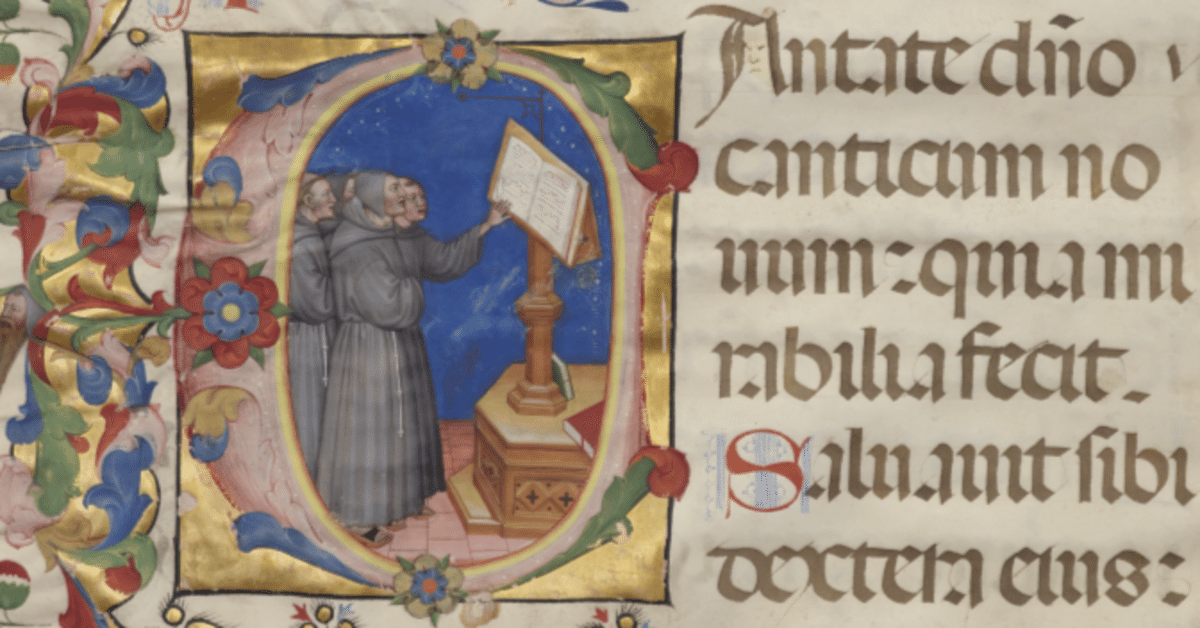 Antate dño
canticum no
uum: quia mi
rabilia fecit.
Saluauit sibi
dextera eius: